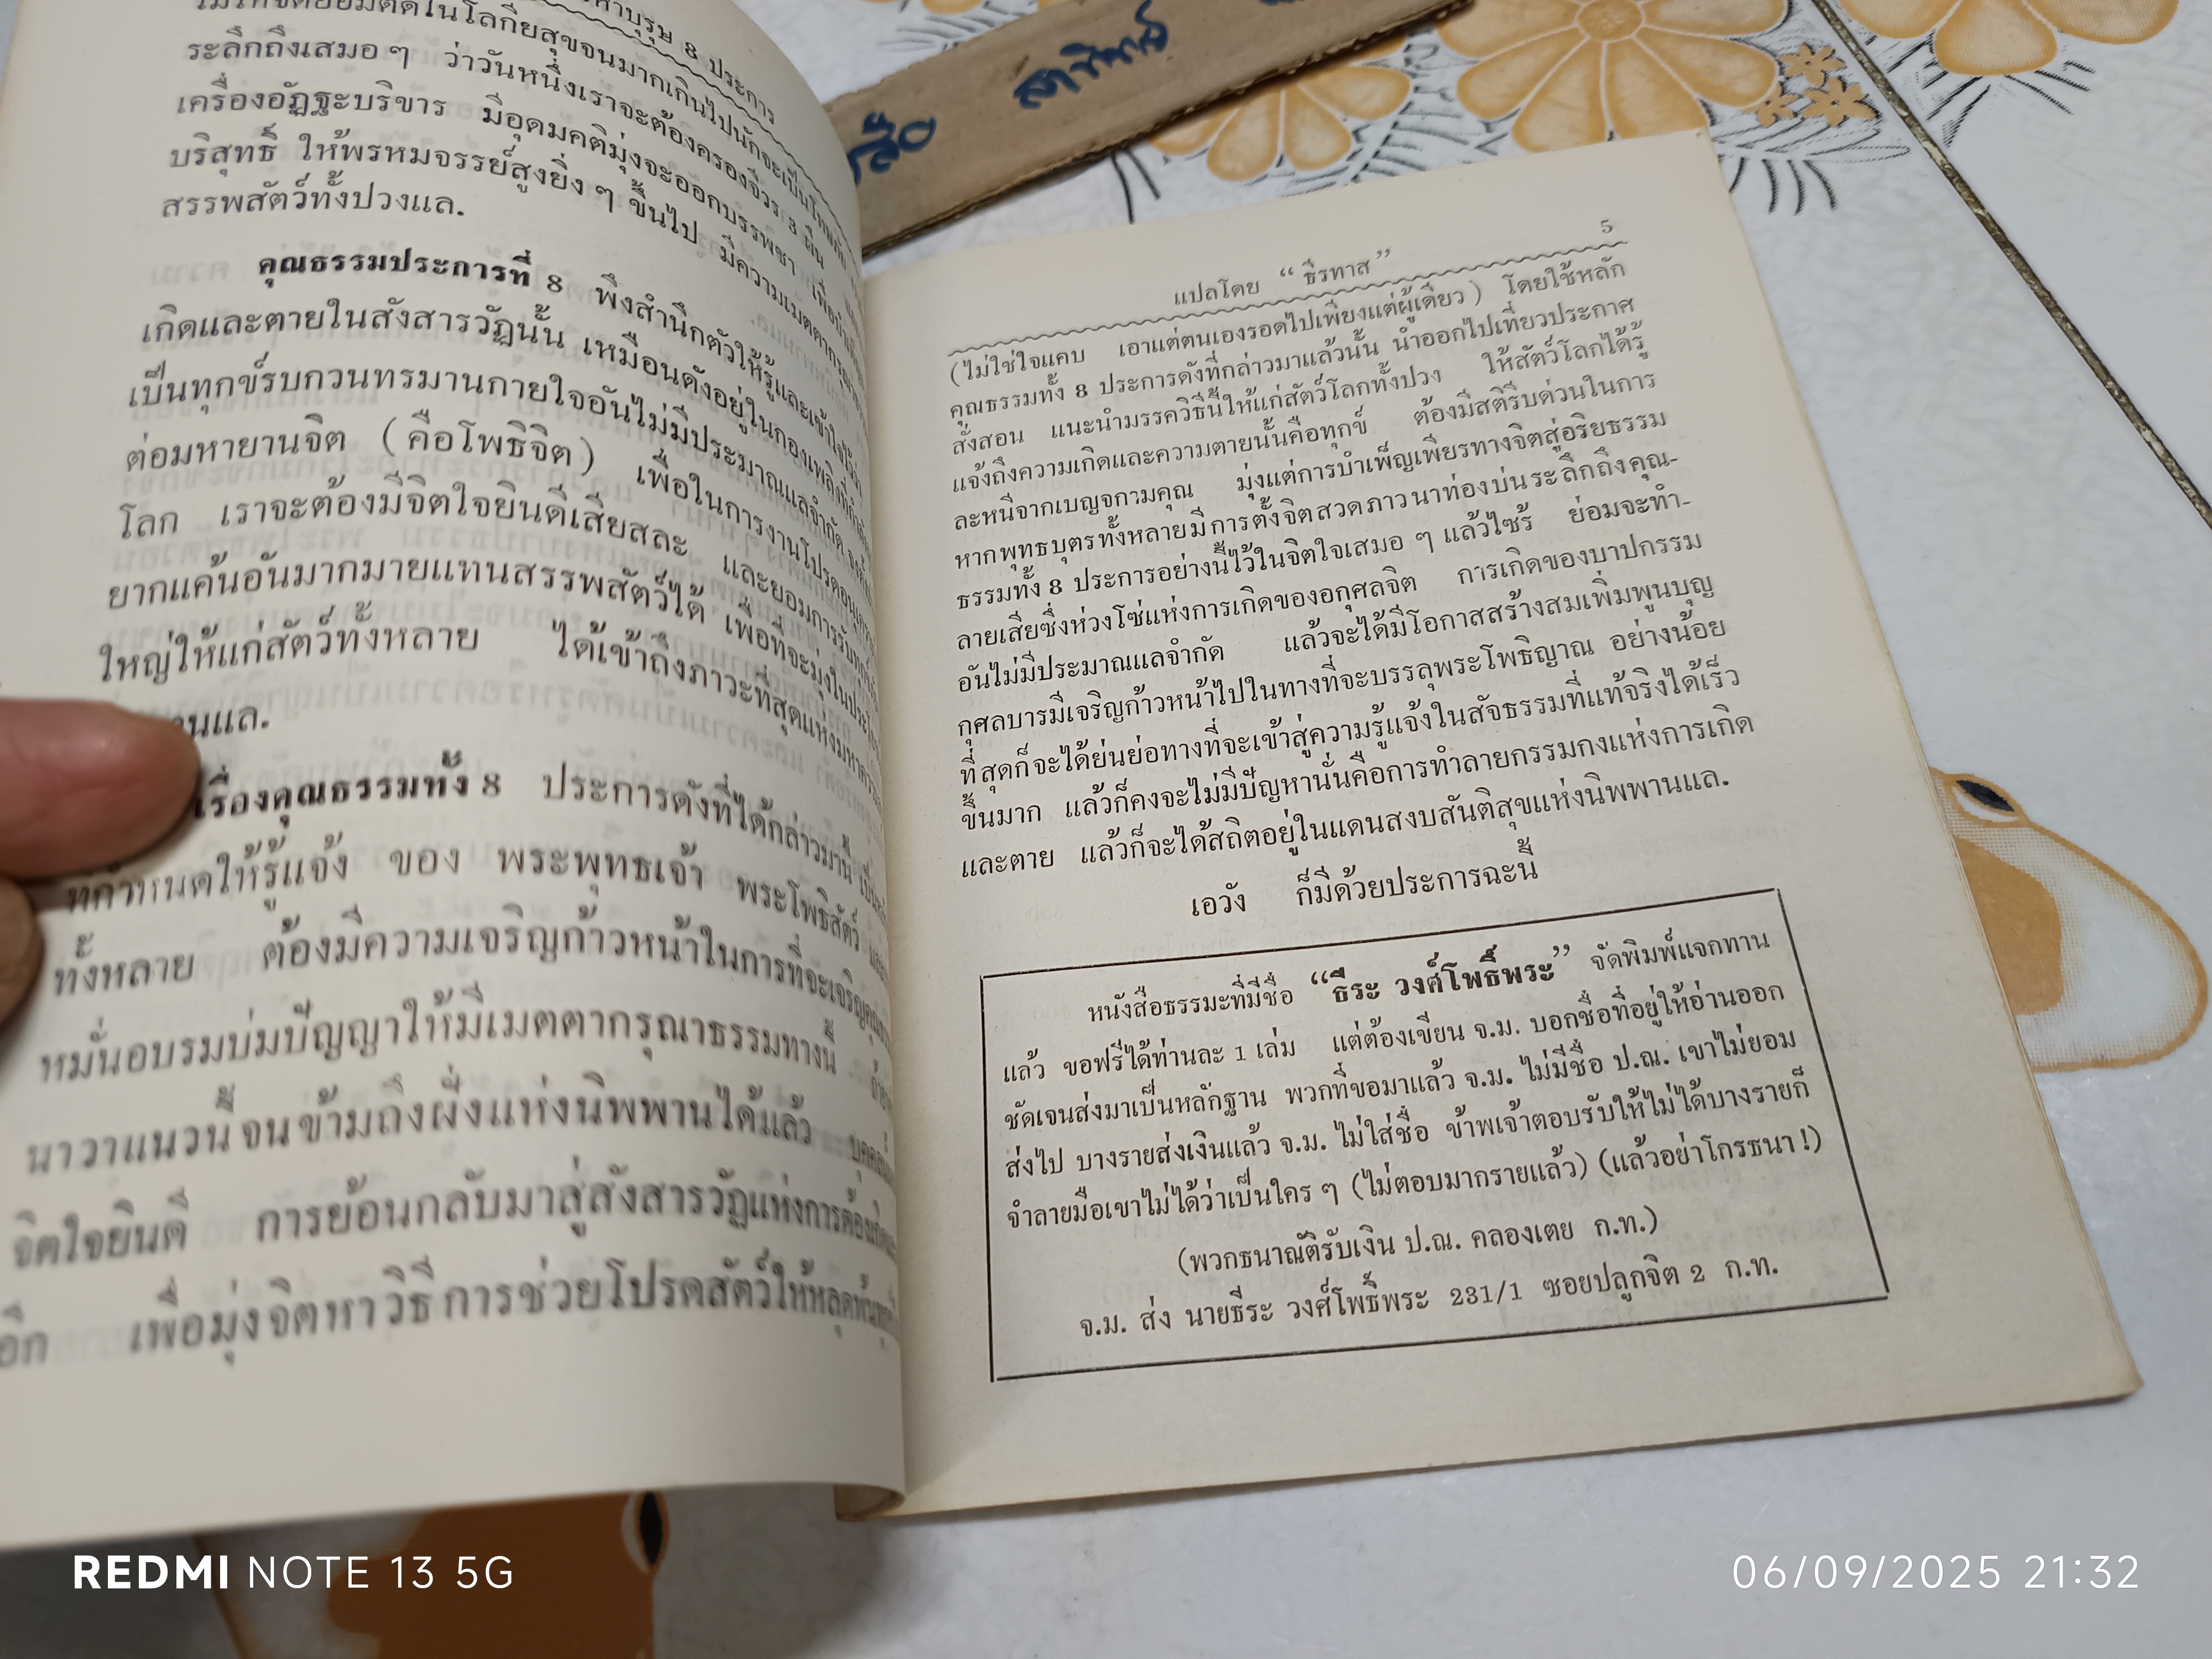 มหาบุรุษ 8 ประการ
ระลึกถึงเสมอ ๆ ว่าวันหนึ่งเราจะต้องครองจีวร 3 ผืน
เครื่องอัฏฐะบริขาร มีอุดมคติมุ่งจะออกบรรพชา
บริสุทธิ์ ให้พรหมจรรย์สูงยิ่ง ๆ ขึ้นไป มีความเมตตากรุณา
สรรพสัตว์ทั้งปวงแล.
คุณธรรมประการที่ 8 พึงสำนึกตัวให้รู้และเข้าใจ
เกิดและตายในสังสารวัฏนั้น เหมือนดังอยู่ในกองเพลิงที่
เป็นทุกข์รบกวนทรมานกายใจอันไม่มีประมาณแลจำกัด
ต่อมหายานจิต (คือโพธิจิต) เพื่อในการงานโปรด
โลก เราจะต้องมีจิตใจยินดีเสียสละ และยอมการรับทุกข์
ยากแค้นอันมากมายแทนสรรพสัตว์ได้ เพื่อที่จะมุ่งในประโยชน์
ใหญ่ให้แก่สัตว์ทั้งหลาย ได้เข้าถึงภาวะที่สุดแห่ง
นแล.
เรื่องคุณธรรมทั้ง 8 ประการดังที่ได้กล่าวมานี้
ที่กำหนดให้รู้แจ้ง ของ พระพุทธเจ้า พระโพธิสัตว์
ทั้งหลาย ต้องมีความเจริญก้าวหน้าในการที่จะเจริญ
หมั่นอบรมบ่มปัญญาให้มีเมตตากรุณาธรรมทางนี้
นาวาแนวนี้จนข้ามถึงฝั่งแห่งนิพพานได้แล้ว
จิตใจยินดี การย้อนกลับมาสู่สังสารวัฏแห่งการต้อง
อีก เพื่อมุ่งจิตหาวิธีการช่วยโปรดสัตว์ให้หลุดพ้น
แปลโดย “ ธีรทาส ” 5
(ไม่ใช่ใจแคบ เอาแต่ตนเองรอดไปเพียงแต่ผู้เดียว) โดยใช้หลัก
คุณธรรมทั้ง 8 ประการดังที่กล่าวมาแล้วนั้น นำออกไปเที่ยวประกาศ
สั่งสอน แนะนำมรรควิธีนี้ให้แก่สัตว์โลกทั้งปวง ให้สัตว์โลกได้รู้
แจ้งถึงความเกิดและความตายนั้นคือทุกข์ ต้องมีสติรีบด่วนในการ
ละหนีจากเบญจกามคุณ มุ่งแต่การบำเพ็ญเพียรทางจิตสู่อริยธรรม
หากพุทธบุตรทั้งหลายมีการตั้งจิตสวดภาวนาท่องบ่นระลึกถึงคุณ-
ธรรมทั้ง 8 ประการอย่างนี้ไว้ในจิตใจเสมอ ๆ แล้วไซร้ ย่อมจะทำ-
ลายเสียซึ่งห่วงโซ่แห่งการเกิดของอกุศลจิต การเกิดของบาปกรรม
อันไม่มีประมาณแลจำกัด แล้วจะได้มีโอกาสสร้างสมเพิ่มพูนบุญ
กุศลบารมีเจริญก้าวหน้าไปในทางที่จะบรรลุพระโพธิญาณ อย่างน้อย
ที่สุดก็จะได้ย่นย่อทางที่จะเข้าสู่ความรู้แจ้งในสัจธรรมที่แท้จริงได้เร็ว
ขึ้นมาก แล้วก็คงจะไม่มีปัญหานั่นคือการทำลายกรรมกงแห่งการเกิด
และตาย แล้วก็จะได้สถิตอยู่ในแดนสงบสันติสุขแห่งนิพพานแล.
เอวัง ก็มีด้วยประการฉะนี้
หนังสือธรรมะที่มีชื่อ “ธีระ วงศ์โพธิ์พระ” จัดพิมพ์แจกทาน
แล้ว ขอฟรีได้ท่านละ 1 เล่ม แต่ต้องเขียน จ.ม. บอกชื่อที่อยู่ให้อ่านออก
ชัดเจนส่งมาเป็นหลักฐาน พวกที่ขอมาแล้ว จ.ม. ไม่มีชื่อ ป.ณ. เขาไม่ยอม
ส่งไป บางรายส่งเงินแล้ว จ.ม. ไม่ใส่ชื่อ ข้าพเจ้าตอบรับให้ไม่ได้บางรายก็
จำลายมือเขาไม่ได้ว่าเป็นใคร ๆ (ไม่ตอบมากรายแล้ว) (แล้วอย่าโกรธนา!)
(พวกธนาณัติรับเงิน ป.ณ. คลองเตย ก.ท.)
จ.ม. ส่ง นายธีระ วงศ์โพธิ์พระ 231/1 ซอยปลูกจิต 2 ก.ท.
REDMI NOTE 13 5G
06/09/2025 21:32